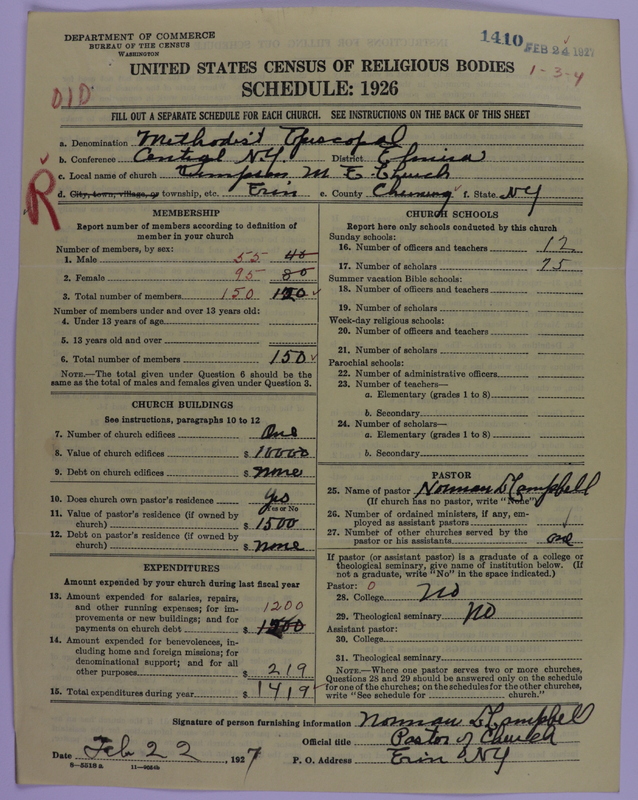 DEPARTMENT OF COMMERCE
BUREAU OF THE CENSUS
WASHINGTON
1410 FEB 24 1927
UNITED STATES CENSUS OF RELIGIOUS BODIES
1-3-4
SCHEDULE: 1926
OID
FILL OUT A SEPARATE SCHEDULE FOR EACH CHURCH. SEE INSTRUCTIONS ON THE BACK OF THIS SHEET
a. Denomination Methodist Episcopal
b. Conference Central N.Y. District Elmira
c. Local name of church M E Church
R
d. City, town, village, or township, etc. Erin e. County Chemung f. State NY
MEMBERSHIP
Report number of members according to definition of
member in your church
Number of members, by sex:
1. Male 55 40
2. Female 95 80
3. Total number of members 150 120
Number of members under and over 13 years old:
4. Under 13 years of age
5. 13 years old and over
6. Total number of members 150
NOTE.—The total given under Question 6 should be the
same as the total of males and females given under Question 3.
CHURCH BUILDINGS
See instructions, paragraphs 10 to 12
7. Number of church edifices One
8. Value of church edifices $ 10000
9. Debt on church edifices $ none
10. Does church own pastor's residence Yes
Yes or No
11. Value of pastor's residence (if owned by
church) $ 1500
12. Debt on pastor's residence (if owned by
church) $ none
EXPENDITURES
Amount expended by your church during last fiscal year
13. Amount expended for salaries, repairs,
and other running expenses; for im-
provements or new buildings; and for
payments on church debt $ 1200
14. Amount expended for benevolences, in-
cluding home and foreign missions; for
denominational support; and for all
other purposes $ 219
15. Total expenditures during year $ 1419
CHURCH SCHOOLS
Report here only schools conducted by this church
Sunday schools:
16. Number of officers and teachers 12
17. Number of scholars 75
Summer vacation Bible schools:
18. Number of officers and teachers
19. Number of scholars
Week-day religious schools:
20. Number of officers and teachers
21. Number of scholars
Parochial schools:
22. Number of administrative officers
23. Number of teachers—
a. Elementary (grades 1 to 8)
b. Secondary
24. Number of scholars—
a. Elementary (grades 1 to 8)
b. Secondary
PASTOR
25. Name of pastor Norman D Campbell
(If church has no pastor, write "None")
26. Number of ordained ministers, if any, em-
ployed as assistant pastors
27. Number of other churches served by the
pastor or his assistants one
If pastor (or assistant pastor) is a graduate of a college or
theological seminary, give name of institution below. (If
not a graduate, write "No" in the space indicated.)
Pastor: 0
28. College No
29. Theological seminary No
Assistant pastor:
30. College
31. Theological seminary
NOTE.—Where one pastor serves two or more churches,
Questions 28 and 29 should be answered only on the schedule
for one of the churches; on the schedules for the other churches,
write "See schedule for church."
Signature of person furnishing information Norman D Campbell
Official title Pastor of Church
Date Feb 22, 1927 P. O. Address Erin NY
8-5518 a